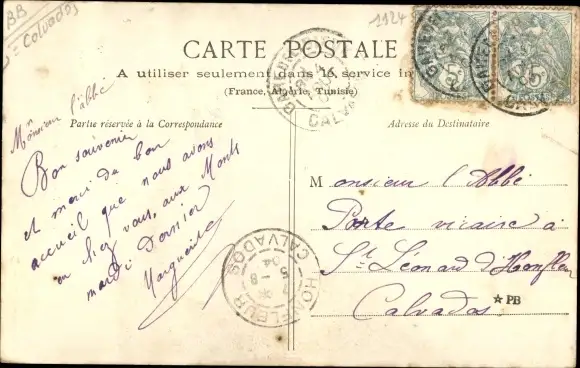 BB
= Calvados
1924
CARTE POSTALE
A utiliser seulement dans le service in
(France, Algérie, Tunisie)
Partie réservée à la Correspondance
Adresse du Destinataire
Monsieur l'abbé
Bon souvenir
et merci du bon
accueil que nous avons
eu chez vous, aux Monts
mardi dernier
Marguerite
Monsieur l'Abbé
Porte vicaire à
St Léonard d'Honfleur
Calvados
★ PB
CALVADOS
HONFLEUR
5 - 8
04
CALVA
5
5